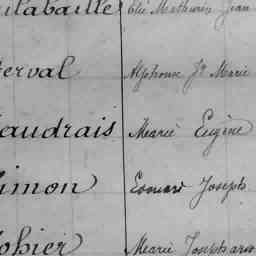 ulabaille Élie Mathurin Jean
erval Alphonse Jh Marie
audrais Marie Eugène
imon Edouard Joseph
ohier Marie Joseph